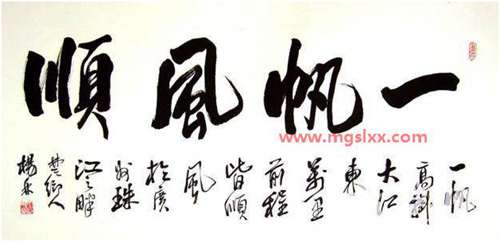 一帆風順
www.mgslxx.com
一帆
高掛
大江
東
萬里
前程
皆順
風
於廣
州珠
江之畔
楚鄉人
楊